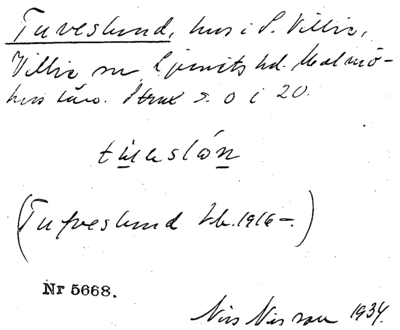 Tuveslund, hus i S. Villie,
Villie sn Ljunits hd. Malmö-
hus län. Strax s. o i 20.
tuveslón
(Tufveslund Kb. 1916-.)
Nr 5668.
Nils Nilsson 1934.